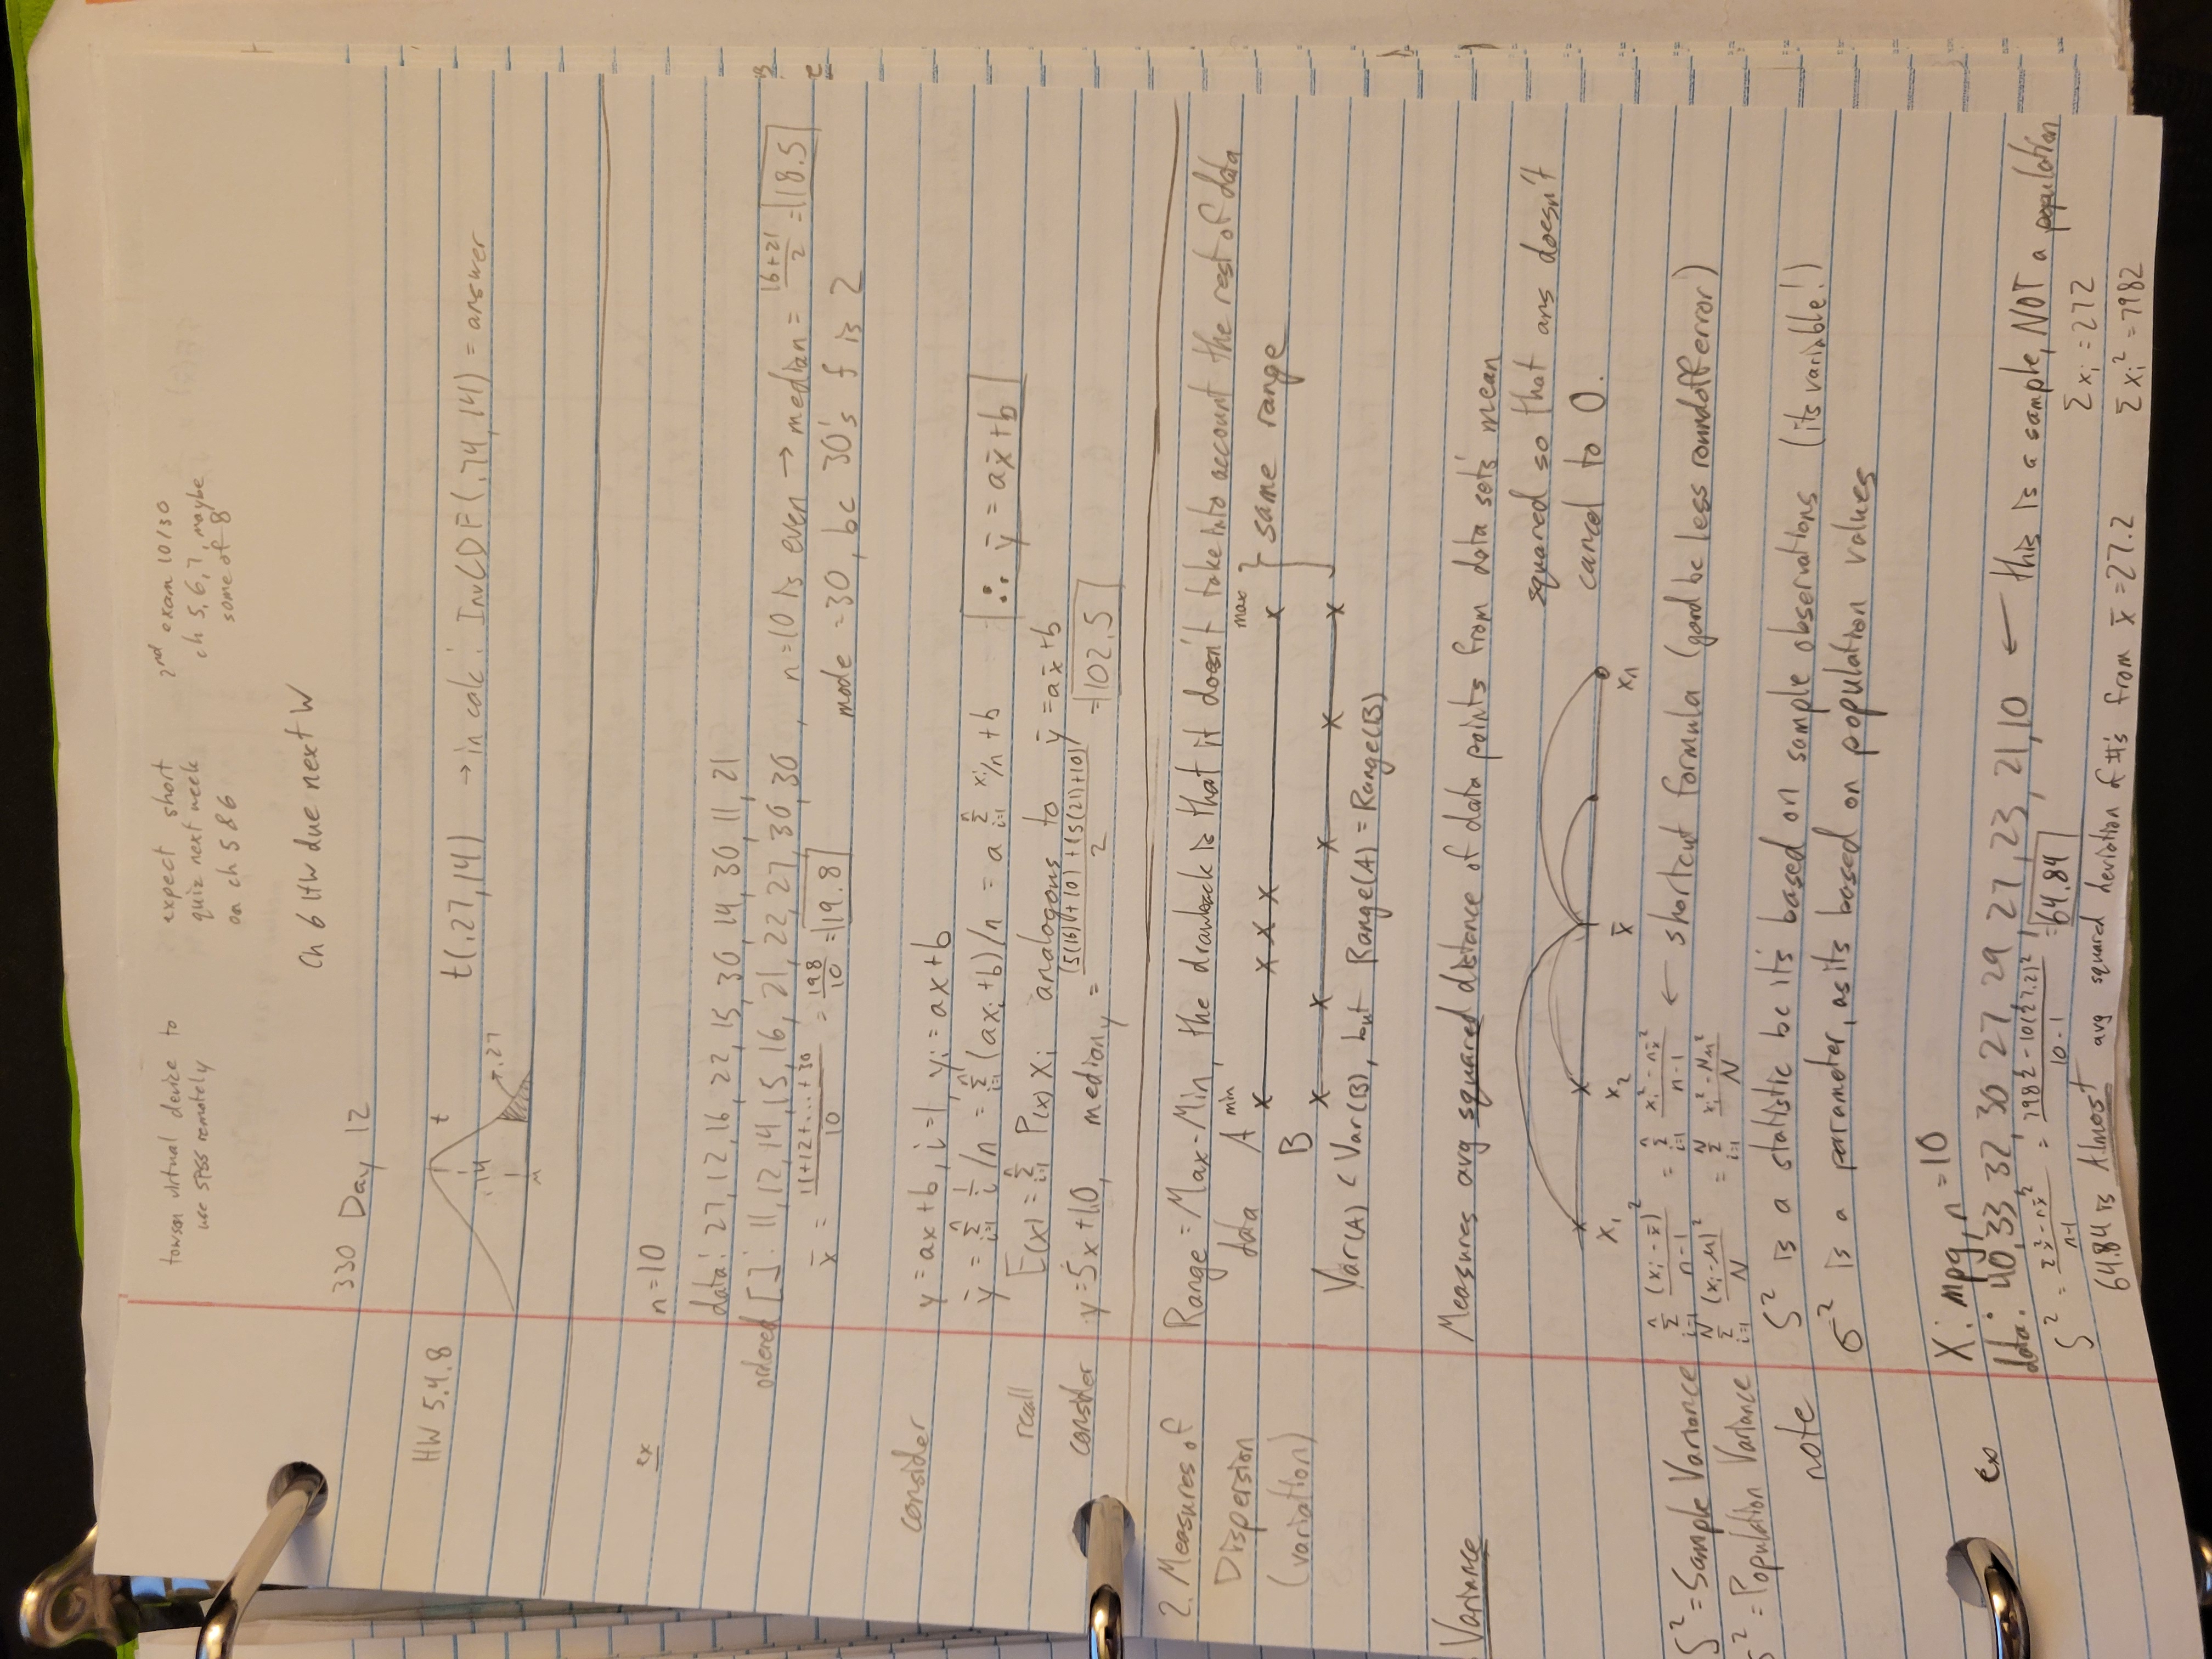 towson virtual device to
use SPSS remotely
expect short
quiz next week
on ch 5 & 6
2nd exam 10/30
ch 5, 6, 7, maybe
some of 8
Ch 6 HW due next W
330 Day 12
HW 5.4.8
t
.14
.27
μ
t(.27,14) → in calc: InvCDF(.74,14) = answer
ex
n=10
data: 27,12,16,22,15,30,14,30,11,21
ordered []: 11,12,14,15,16,21,22,27,30,30, n=10 is even → median = (16+21)/2 = 18.5
x̄ = (11+12+...+30)/10 = 198/10 = 19.8 mode = 30, bc 30's f is 2
consider y = ax+b, i=1, yi = ax+b
ȳ = Σ(i=1 to n) 1/i /n = Σ(i=1 to n) (axi+b)/n = a Σ(i=1 to n) xi/n + b ∴ ȳ = ax̄+b
recall E(x) = Σ(i=1 to n) P(x) xi analogous to ȳ = ax̄+b
consider y=5x+10, mediany = ((5(16)+10)+(5(21)+10))/2 = 102.5
2. Measures of
Dispersion
(variation)
Range = Max-Min, the drawback is that it doesn't take into account the rest of data
data A min x x x x max x } same range
B x x x x x
Var(A) < Var(B), but Range(A) = Range(B)
Variance Measures avg squared distance of data points from data set's mean
squared so that ans doesn't
cancel to 0.
x1 x2 x̄ xn
S² = Sample Variance Σ(i=1 to n) (xi - x̄)²/(n-1) = Σ(i=1 to n) (xi² - nx̄²)/(n-1) ← shortcut formula (good bc less roundoff error)
² = Population Variance Σ(i=1 to N) (xi-μ)²/N = Σ(i=1 to N) (xi² - Nμ²)/N
note S² is a statistic bc it's based on sample observations (its variable!)
σ² is a parameter, as its based on population values
ex X: mpg, n=10
data: 40,33,32,30,27,29,27,23,21,10 ← this is a sample, NOT a population
S² = (Σx² - nx̄²)/(n-1) = (7982 - 10(27.2)²)/(10-1) = 64.84
Σxi = 272
64.84 is Almost avg squared deviation of #'s from x̄ = 27.2
Σxi² = 7982